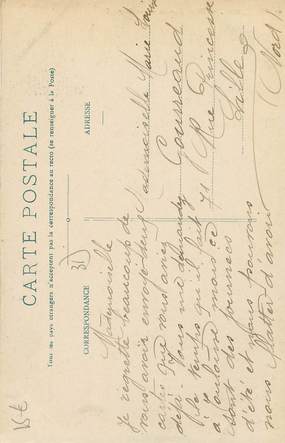 CARTE POSTALE
Tous les pays étrangers n'acceptent pas la correspondance au recto (se renseigner à la Poste)
CORRESPONDANCE
ADRESSE
Mademoiselle
Je regrette beaucoup de
vous avoir envoyé deux
cartes que vous aviez
déjà. Vous me demandez
le temps qu'il fait
à Toulouse mais ce
sont des journées
d'été et nous pouvons
nous flatter d'avoir
Mademoiselle Marie Louise
Courreaud
71 Rue Princesse
Lille
(Nord)